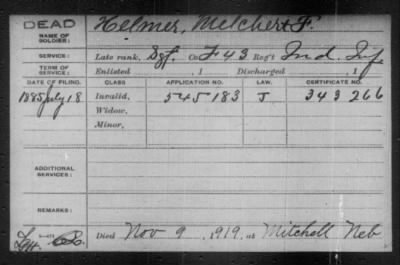 DEAD
NAME OF SOLDIER: Helmer, Melchert F.
SERVICE: Late rank, Sgt. Co. F 43 Reg't Ind. Inf
TERM OF SERVICE: Enlisted , 1 Discharged , 1
DATE OF FILING. CLASS. APPLICATION NO. LAW. CERTIFICATE NO.
1885 July 18 Invalid, 545183 J 343266
Widow,
Minor,
ADDITIONAL SERVICES:
REMARKS:
Died Nov 9, 1919, at Mitchell Neb